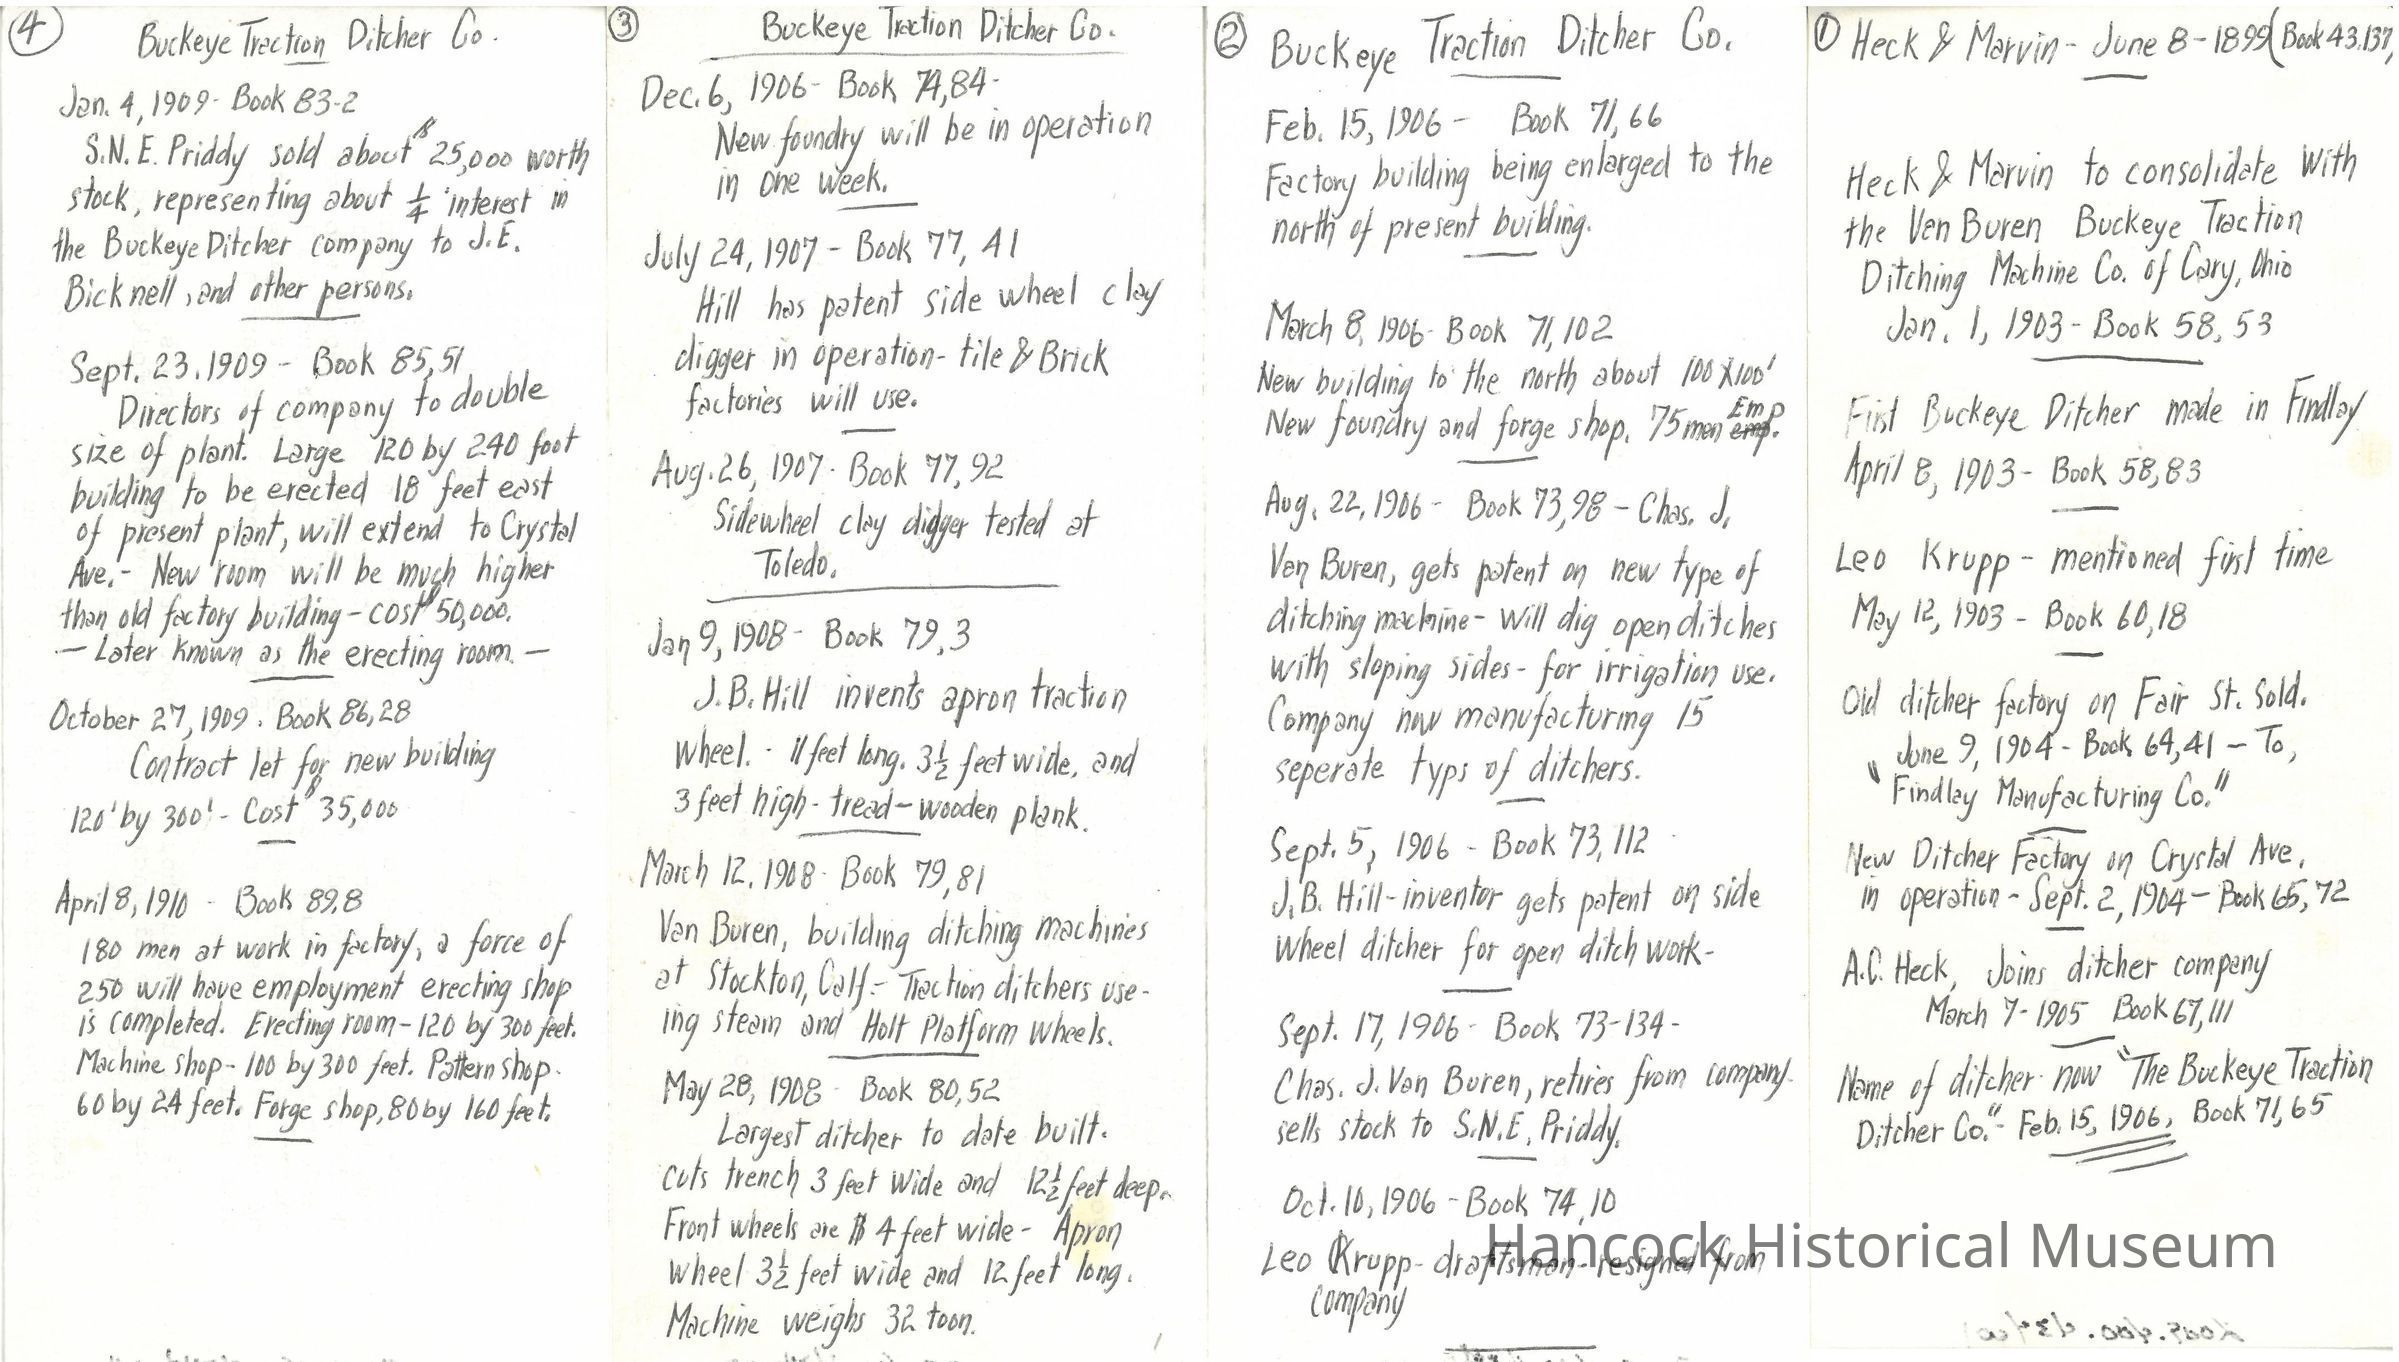 ④
Buckeye Traction Ditcher Co.
Jan. 4, 1909- Book 83-2
S.N.E. Priddy sold about $25,000 worth
stock, representing about 1/4 interest in
the Buckeye Ditcher company to J.E.
Bicknell, and other persons.
Sept. 23. 1909 - Book 85,51
Directors of company to double
size of plant. Large 120 by 240 foot
building to be erected 18 feet east
of present plant, will extend to Crystal
Ave.- New room will be much higher
than old factory building - cost $50,000.
- Later known as the erecting room. -
October 27, 1909. Book 86,28
Contract let for new building
120' by 300' - Cost $35,000
April 8, 1910 - Book 89,8
180 men at work in factory, a force of
250 will have employment erecting shop
is completed. Erecting room - 120 by 300 feet.
Machine shop - 100 by 300 feet. Pattern shop -
60 by 24 feet. Forge shop, 80 by 160 feet.
③
Buckeye Traction Ditcher Co.
Dec. 6, 1906- Book 74,84-
New foundry will be in operation
in one week.
July 24, 1907 - Book 77, 41
Hill has patent side wheel clay
digger in operation - tile & Brick
factories will use.
Aug. 26, 1907- Book 77,92
Sidewheel clay digger tested at
Toledo.
Jan 9, 1908- Book 79,3
J.B. Hill invents apron traction
wheel. - 11 feet long. 3 1/2 feet wide, and
3 feet high - tread - wooden plank.
March 12, 1908- Book 79,81
Van Buren, building ditching machines
at Stockton, Calf - Traction ditchers use-
ing steam and Holt Platform wheels.
May 28, 1908 - Book 80,52
Largest ditcher to date built.
cuts trench 3 feet wide and 12 1/2 feet deep.
Front wheels are 4 feet wide - Apron
wheel 3 1/2 feet wide and 12 feet long.
Machine weighs 32 toon.
②
Buckeye Traction Ditcher Co.
Feb. 15, 1906 - Book 71,66
Factory building being enlarged to the
north of present building.
March 8, 1906- Book 71,102
New building to the north about 100 X 100'
New foundry and forge shop. 75 men Emp emp.
Aug. 22, 1906 - Book 73,98 - Chas. J.
Van Buren, gets patent on new type of
ditching machine - will dig open ditches
with sloping sides - for irrigation use.
Company now manufacturing 15
seperate typs of ditchers.
Sept. 5, 1906 - Book 73,112
J.B. Hill - inventor gets patent on side
wheel ditcher for open ditch work-
Sept. 17, 1906- Book 73-134-
Chas. J. Van Buren, retires from company
sells stock to S.N.E. Priddy.
Oct. 10, 1906 - Book 74,10
Leo Krupp - draftsman - resigned from
company
① Heck & Marvin - June 8 - 1899 (Book 43.137,
Heck & Marvin to consolidate with
the Van Buren Buckeye Traction
Ditching Machine Co. of Cary, Ohio
Jan. 1, 1903 - Book 58, 53
First Buckeye Ditcher made in Findlay
April 8, 1903 - Book 58,83
Leo Krupp - mentioned first time
May 12, 1903 - Book 60,18
Old ditcher factory on Fair St. Sold.
June 9, 1904 - Book 64,41 - To,
"Findlay Manufacturing Co."
New Ditcher Factory on Crystal Ave.
in operation - Sept. 2, 1904 - Book 65,72
A.C. Heck, Joins ditcher company
March 7 - 1905 Book 67,111
Name of ditcher now "The Buckeye Traction
Ditcher Co." - Feb. 15, 1906, Book 71,65
Hancock Historical Museum